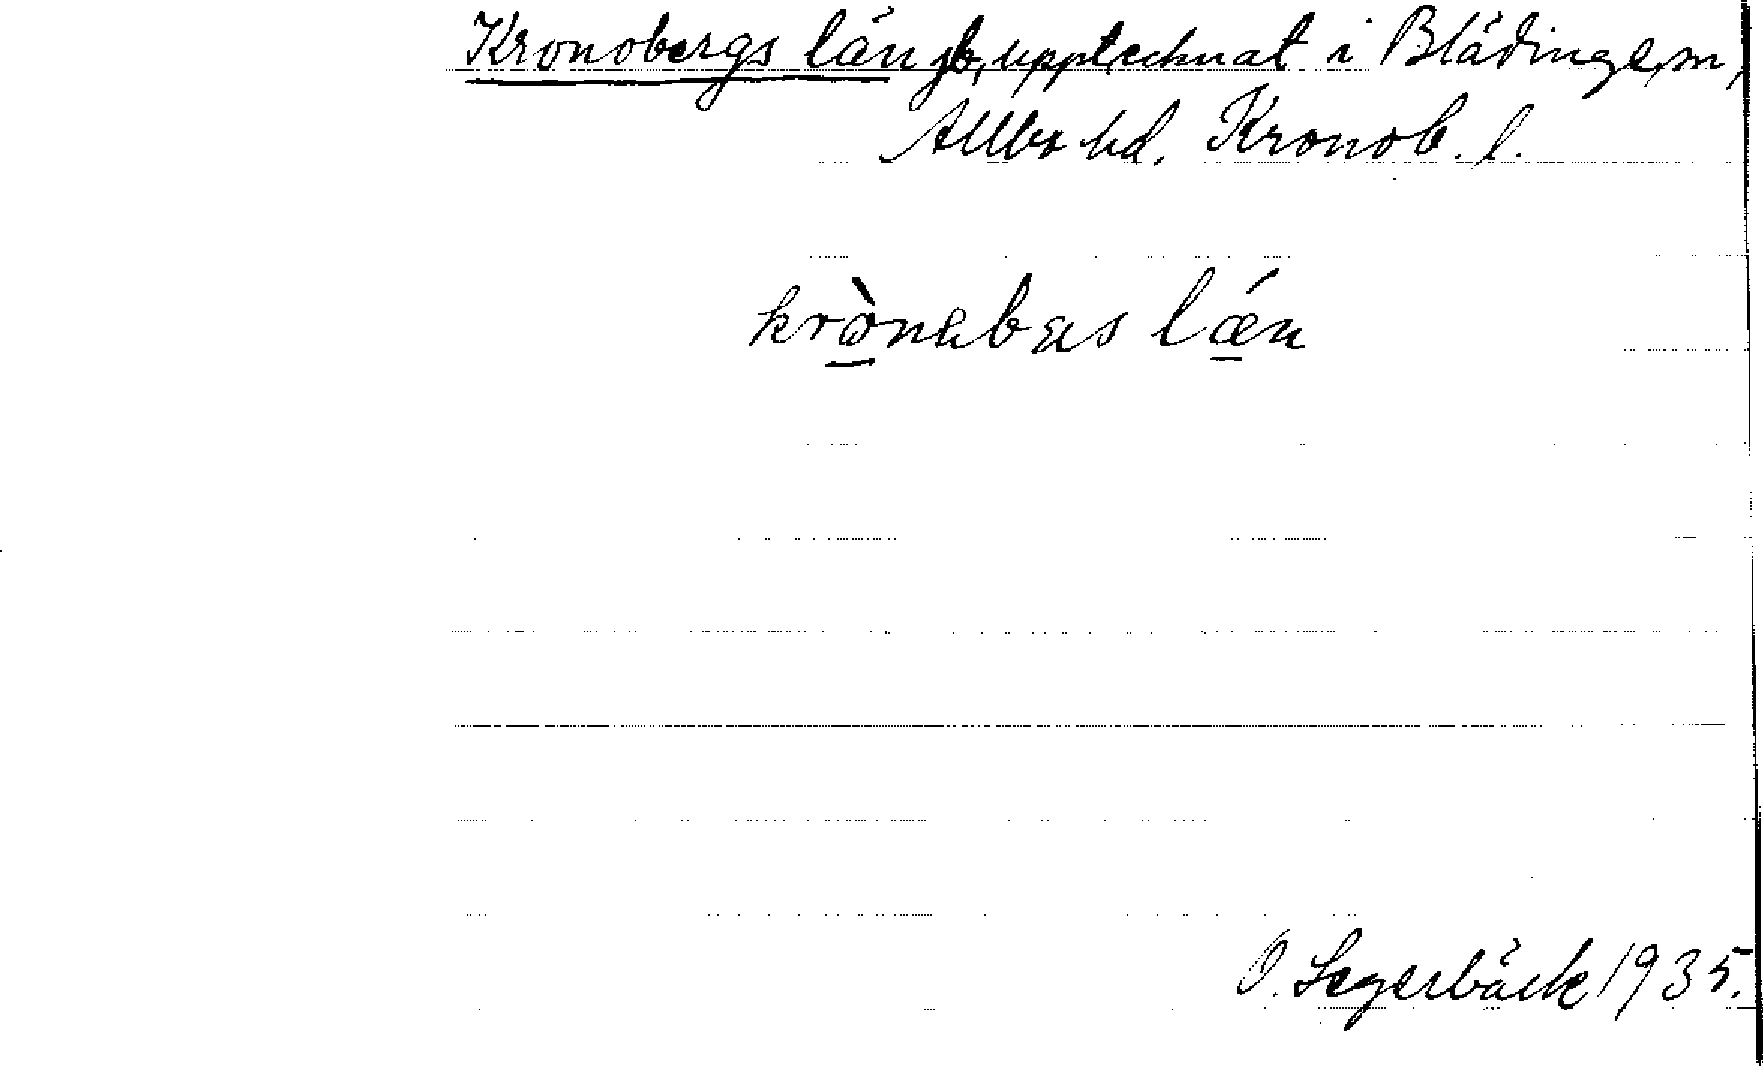 Kronobergs län jb, upptecknat i Blädinge sn,
Allbo hd. Kronob. l.
krònabæs lǽn
O. Segerbäck 1935.